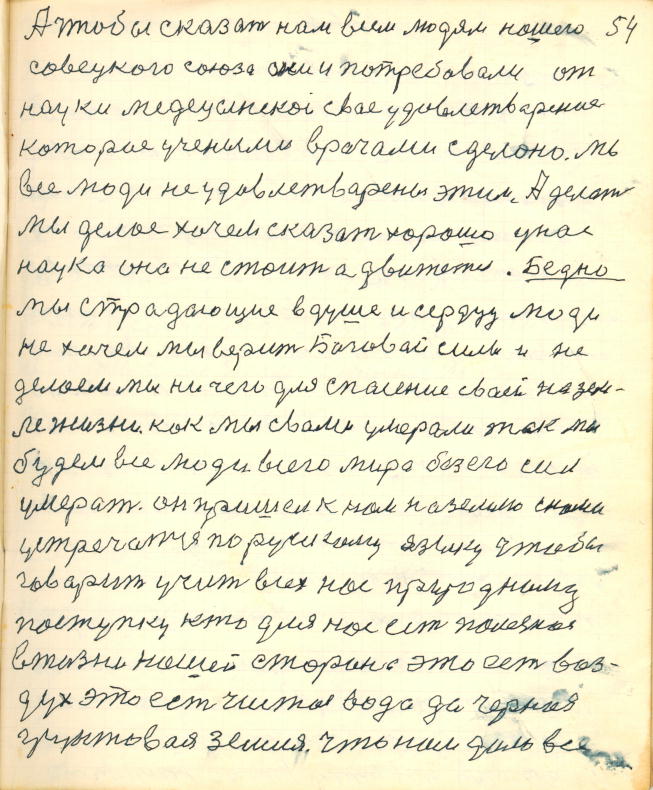 А чтобы сказат нам всем людям нашего 54
совецкого союза они и потребовали от
науки медецинскоі свае удовлетварение
каторае учеными врачами сделоно. мы
все люди не удовлетварены этим. А делат
мы делое хочем сказат хорошо у нас
наука она не стоит а движетси. Бедно
мы страдающие в душе и сердцу люди
не хочем мы верит Баговай силы и не
делоем мы ни чего для спасение сваей на зем-
ле жизни. кок мы с вами умерали так мы
будем все люди всего мира без его сил
умерат. он пришел к нам на землю с нами
устречатся по рускаму языку чтобы
говарит учит всех нас природнаму
поступку кто для нас ест полезная
в жизни нашей сторона это ест воз-
дух это ест чистая вода да черная
грунтовая земля. что нам даль все